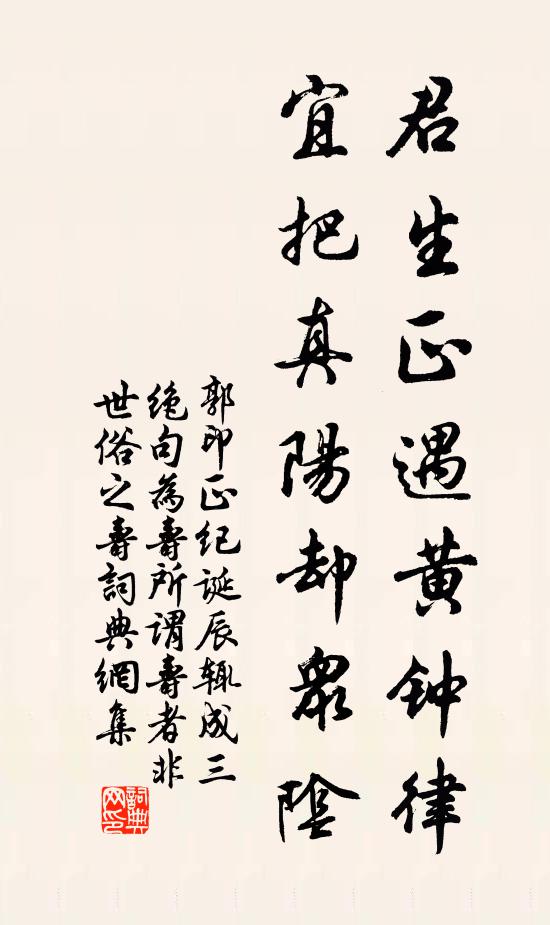 君生正遇黄钟律
宜把真陽却眾陰
郭印正纪诞辰辄成三
绝句為壽所谓壽者非
世俗之壽詞典網集
詞典
网印